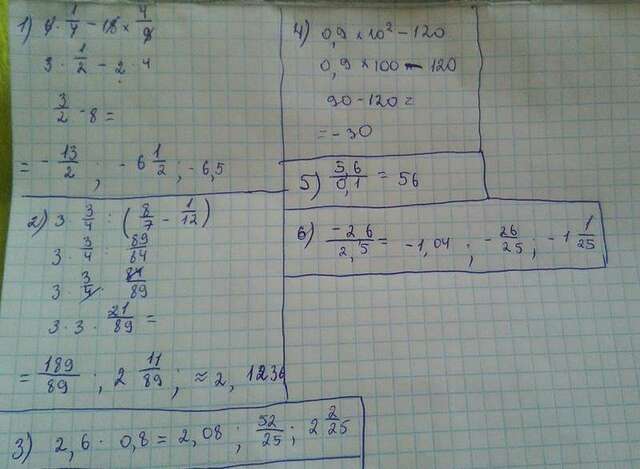 1) 6 · 1/4 - 18 × 4/9
3 · 1/2 - 2 · 4
3/2 - 8 =
= - 13/2 ; - 6 1/2 ; - 6,5
2) 3 · 3/4 : (8/7 - 1/12)
3 · 3/4 : 89/84
3 · 3/4 · 84/89
3 · 3 · 21/89 =
= 189/89 ; 2 11/89 ; ≈ 2, 1236
3) 2,6 · 0,8 = 2,08 ; 52/25 ; 2 2/25
4) 0,9 × 10² - 120
0,9 × 100 - 120
90 - 120 =
= - 30
5) 5,6/0,1 = 56
6) -2 6/2,5 = -1,04 ; - 26/25 ; -1 1/25